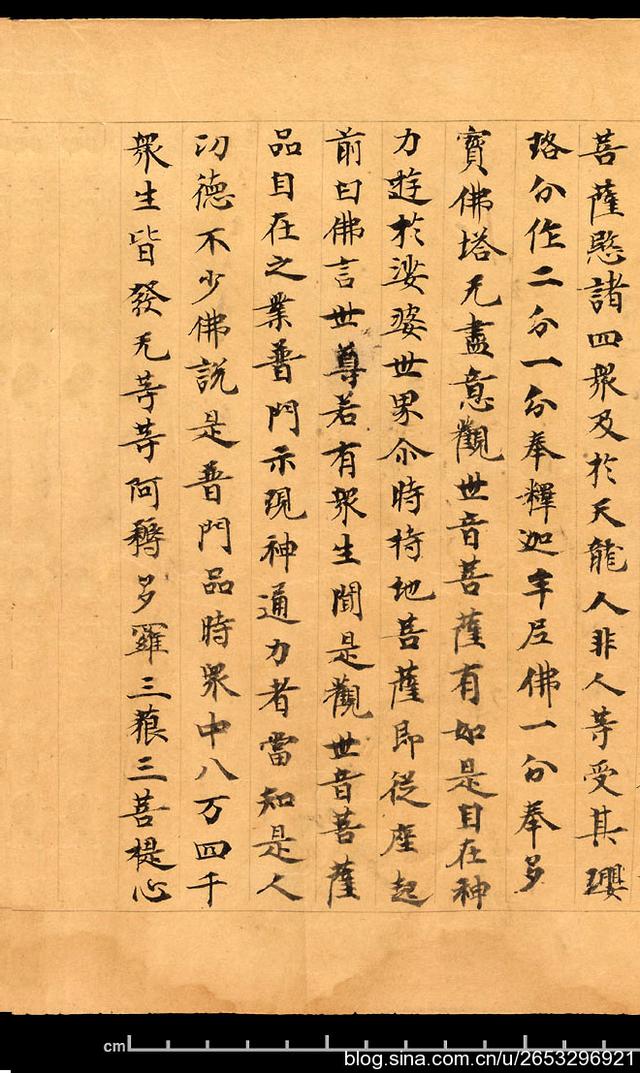 菩薩愍諸四衆及於天龍人非人等受其瓔
珞分作二分一分奉釋迦牟尼佛一分奉多
寳佛塔无盡意觀世音菩薩有如是自在神
力遊於娑婆世界尒時持地菩薩即從座起
前曰佛言世尊若有衆生聞是觀世音菩薩
品自在之業普門示現神通力者當知是人
功德不少佛說是普門品時衆中八万四千
衆生皆發无等等阿耨多羅三藐三菩提心
cm
blog.sina.com.cn/u/2653296921